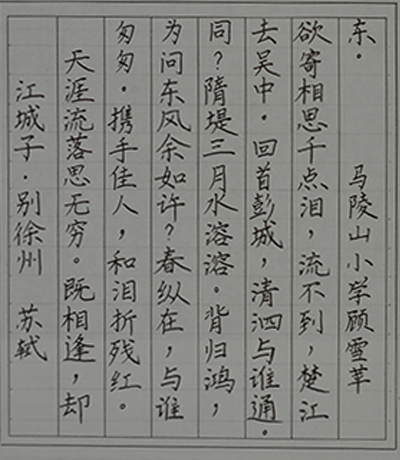 江城子·别徐州 苏轼
天涯流落思无穷。既相逢,却
匆匆。携手佳人,和泪折残红。
为问东风余如许?春纵在,与谁
同?隋堤三月水溶溶。背归鸿,
去吴中。回首彭城,清泗与谁通。
欲寄相思千点泪,流不到,楚江
东。 马陵山小学顾雪苹